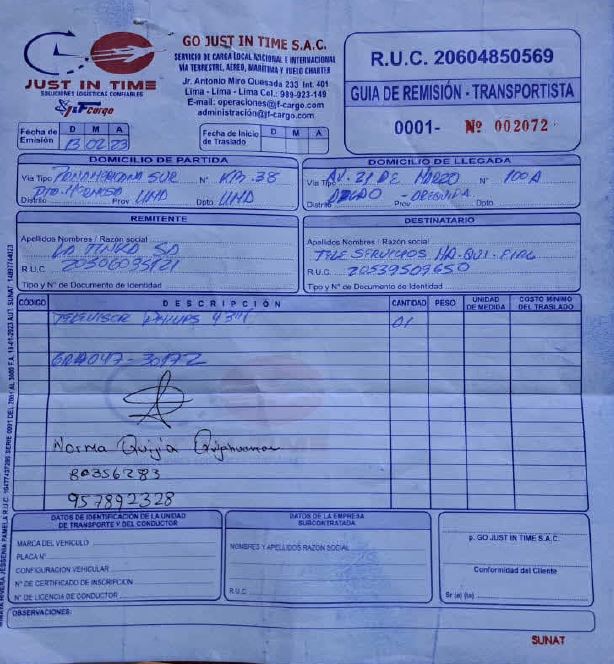 GO JUST IN TIME S.A.C.
SERVICIO DE CARGA LOCAL NACIONAL E INTERNACIONAL
VIA TERRESTRE, AEREO, MARITIMA Y VUELO CHARTER
Jr. Antonio Miro Quesada 233 Int. 401
Lima - Lima - Lima Cel.: 989-923-149
E-mail: operaciones@jf-cargo.com
administración@jf-cargo.com
JUST IN TIME
SOLUCIONES LOGISTICAS CONFIABLES
J&F cargo
R.U.C. 20604850569
GUIA DE REMISIÓN - TRANSPORTISTA
0001- Nº 002072
Fecha de Emisión D M A
13 02 23
Fecha de Inicio de Traslado D M A
DOMICILIO DE PARTIDA
Via Tipo PANAMERICANA SUR N° KM. 38
Distrito Prov LIMA Dpto LIMA
DOMICILIO DE LLEGADA
Via Tipo AV. 21 DE MARZO N° 100A
Distrito Prov AREQUIPA Dpto
REMITENTE
Apellidos Nombres / Razón social
LA TINKA SA
R.U.C.
Tipo y N° de Documento de Identidad
DESTINATARIO
Apellidos Nombres / Razón social
TELE SERVICIOS
R.U.C. 20539509650
Tipo y N° de Documento de Identidad
CÓDIGO DESCRIPCIÓN CANTIDAD PESO UNIDAD DE MEDIDA COSTO MINIMO DEL TRASLADO
TELEVISOR PHILIPS 43" 01
Norma Quijia
80356283
957892328
DATOS DE IDENTIFICACIÓN DE LA UNIDAD DE TRANSPORTE Y DEL CONDUCTOR
MARCA DEL VEHICULO
PLACA N°
CONFIGURACION VEHICULAR
N° DE CERTIFICADO DE INSCRIPCION
N° DE LICENCIA DE CONDUCTOR
DATOS DE LA EMPRESA SUBCONTRATADA
NOMBRES Y APELLIDOS RAZON SOCIAL
R.U.C
p. GO JUST IN TIME S.A.C.
Conformidad del Cliente
Sr (a) (ta)
OBSERVACIONES:
SUNAT